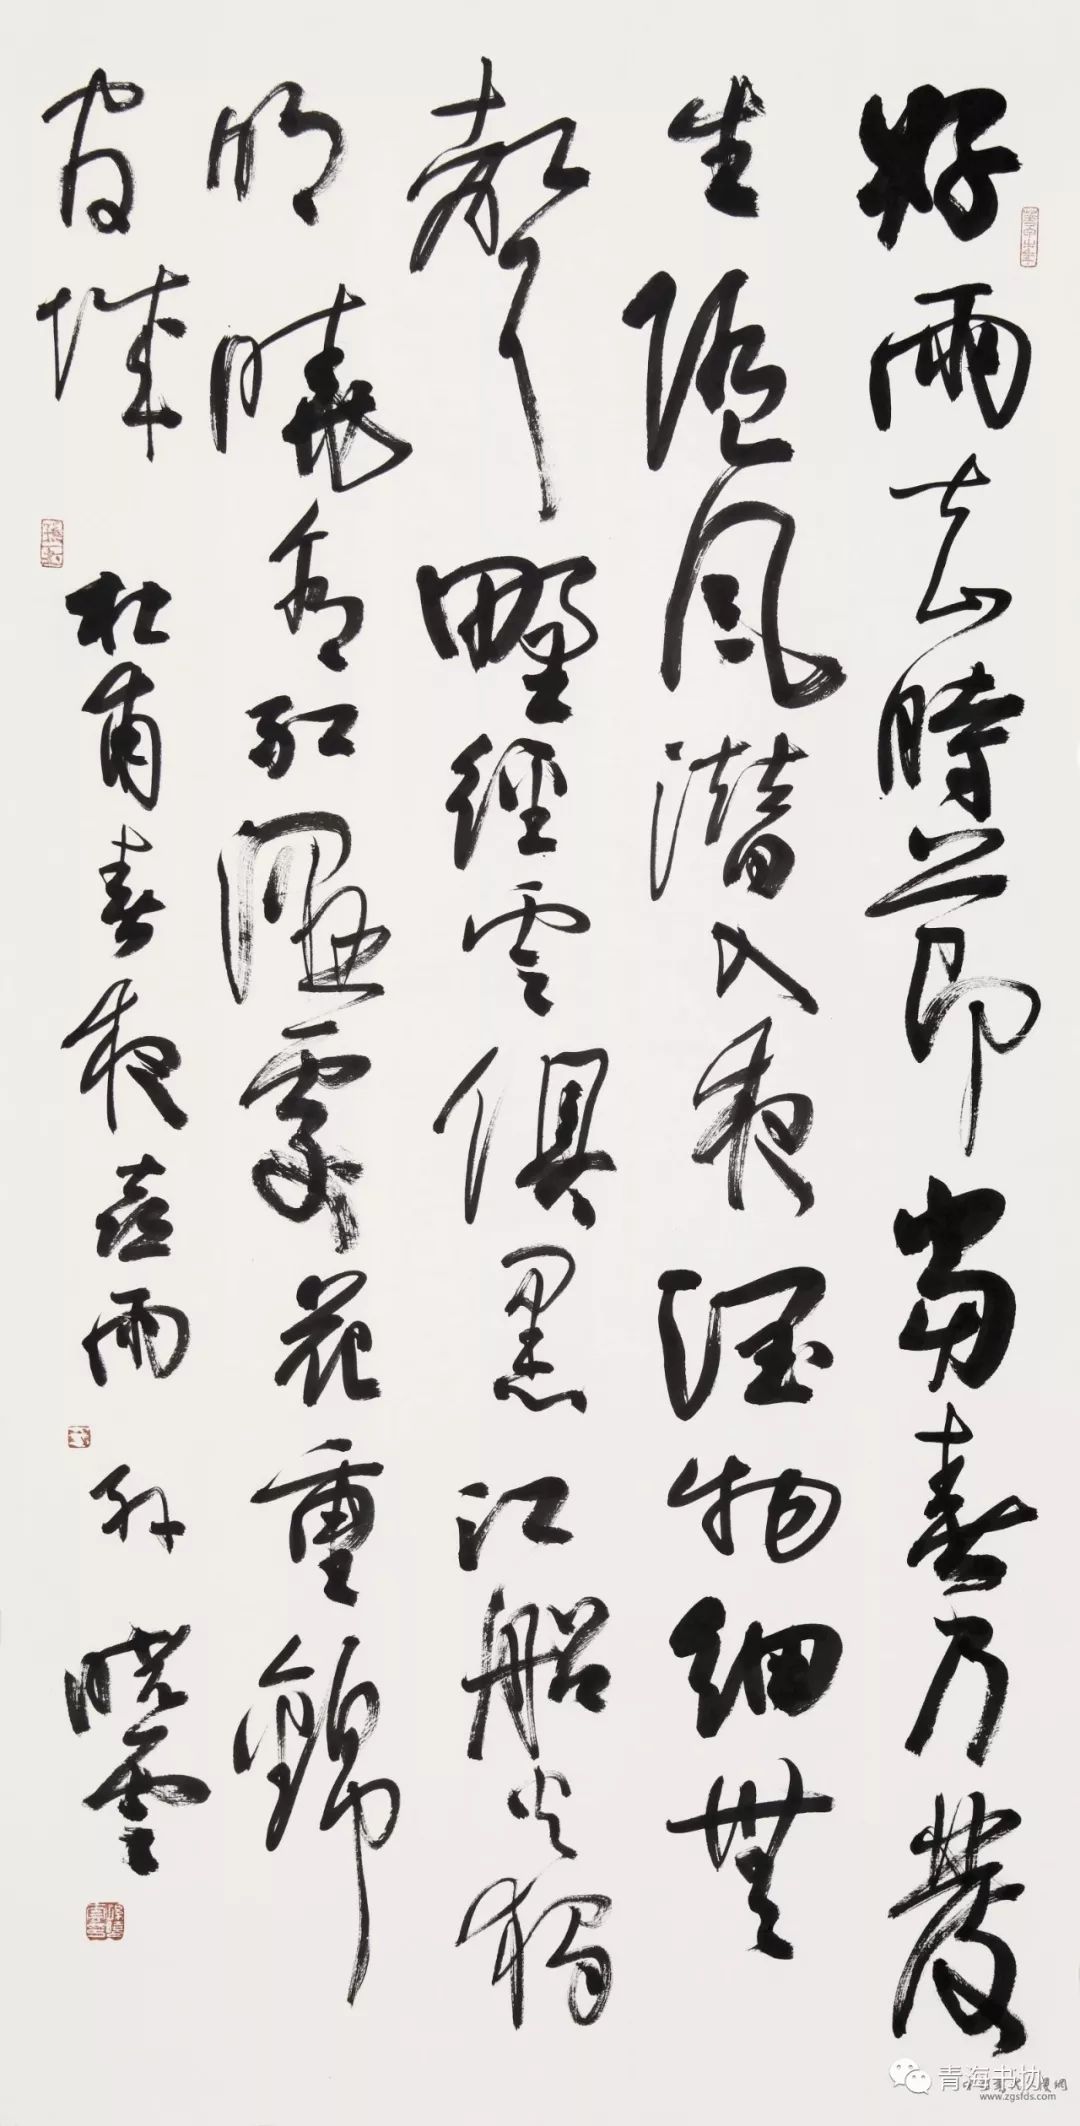 好雨知時節當春乃發
生隨風潛入夜潤物細無
聲野徑雲俱黑江船火獨
明曉看紅濕處花重錦
官城 杜甫春夜喜雨 孫曉雲
青海书协
www.zgsfds.com